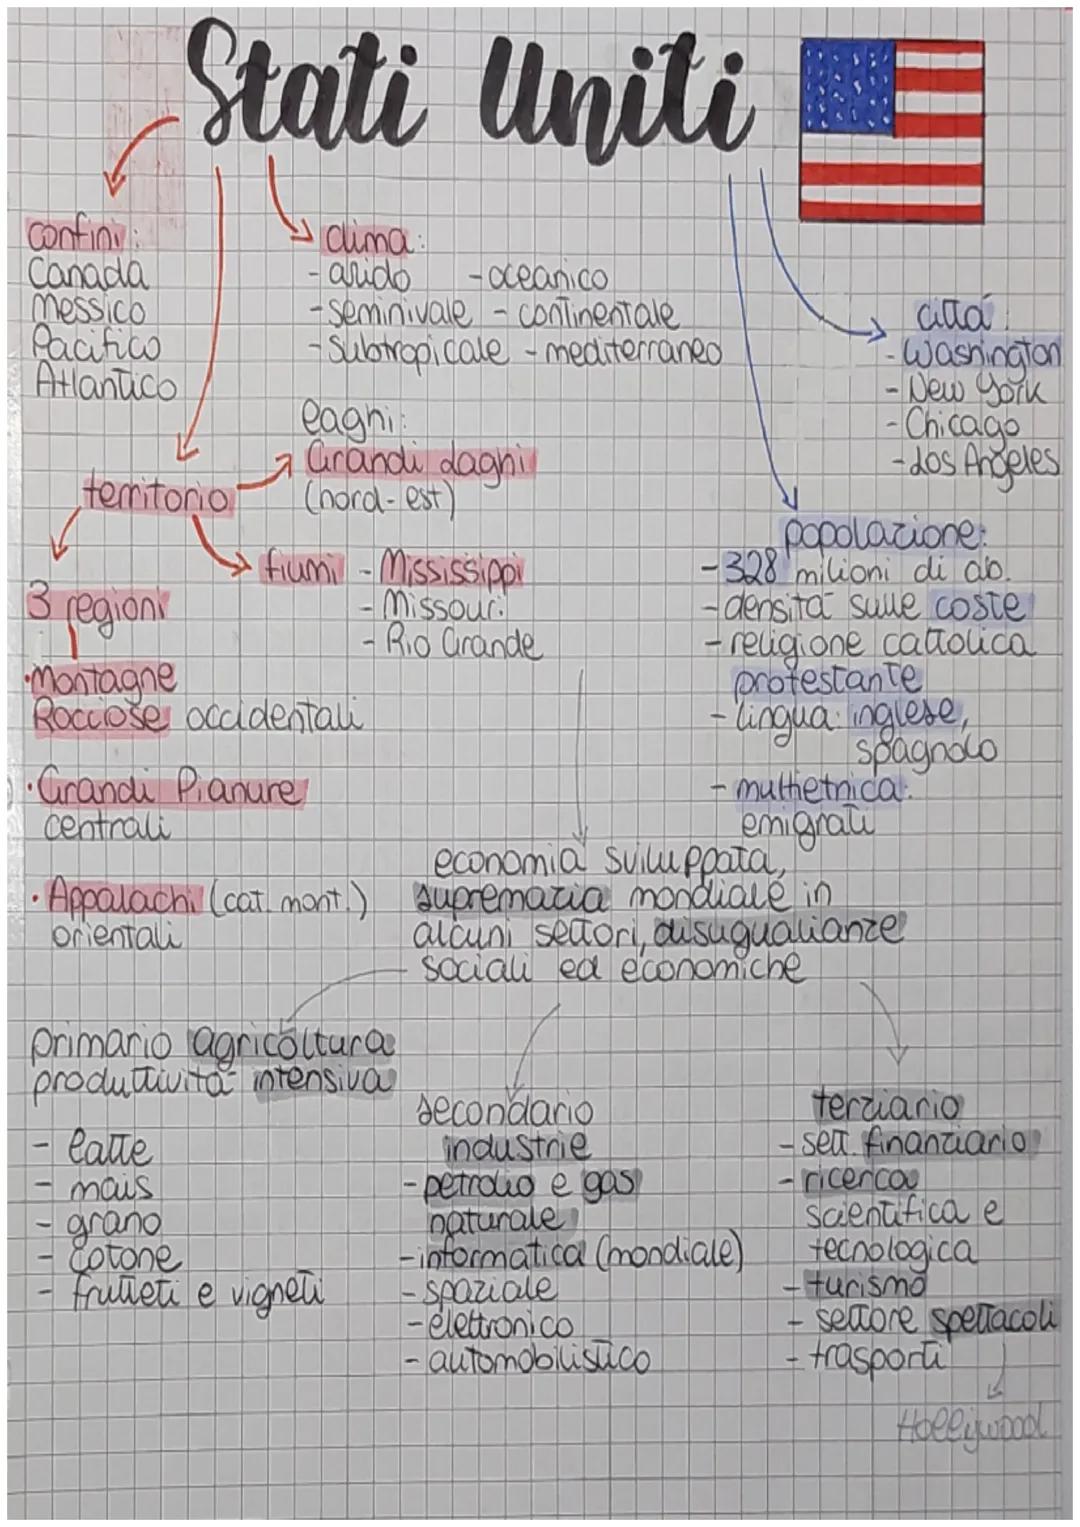 Stati Uniti
confini:
Canada
Messico
Pacifico
Atlantico
clima:
- arido - oceanico
- seminivale - continentale
- subtropicale - mediterraneo
città:
- Washington
- New York
- Chicago
- Los Angeles
territorio
laghi:
Grandi laghi
(nord-est)
fiumi - Mississippi
- Missouri
- Rio Grande
3 regioni
• Montagne
Rocciose occidentali
• Grandi Pianure
centrali
• Appalachi (cat. mont.)
orientali
popolazione:
- 328 milioni di ab.
- densità sulle coste
- religione cattolica
protestante
- lingua: inglese,
spagnolo
- multietnica:
emigrati
economia sviluppata,
supremazia mondiale in
alcuni settori, disugualianze
sociali ed economiche
primario agricoltura
produttività intensiva
- latte
- mais
- grano
- cotone
- frutteti e vigneti
secondario
industrie
- petrolio e gas
naturale
- informatica (mondiale)
- spaziale
- elettronico
- automobilistico
terziario
- sett. finanziario
- ricerca
scientifica e
tecnologica
- turismo
- settore spettacoli
- trasporti
Hollywood